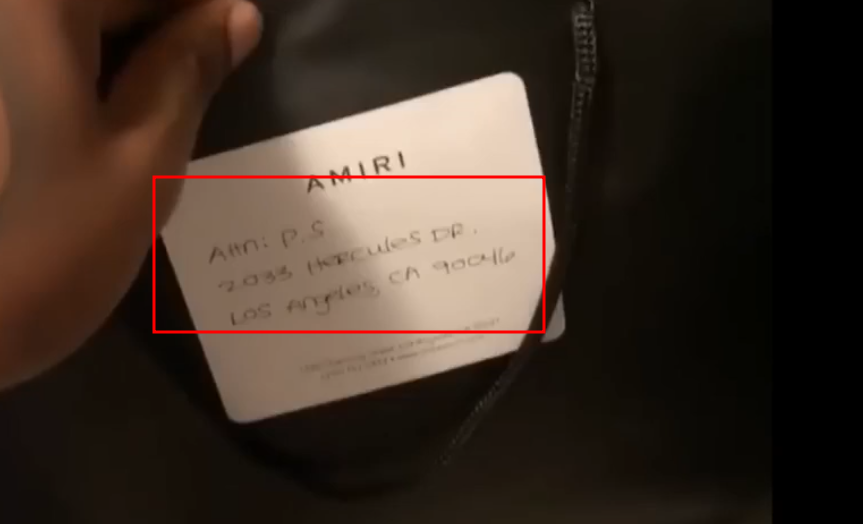 AMIRI
Attn: P.S
2033 Hercules DR.
LOS Angeles, CA 90046